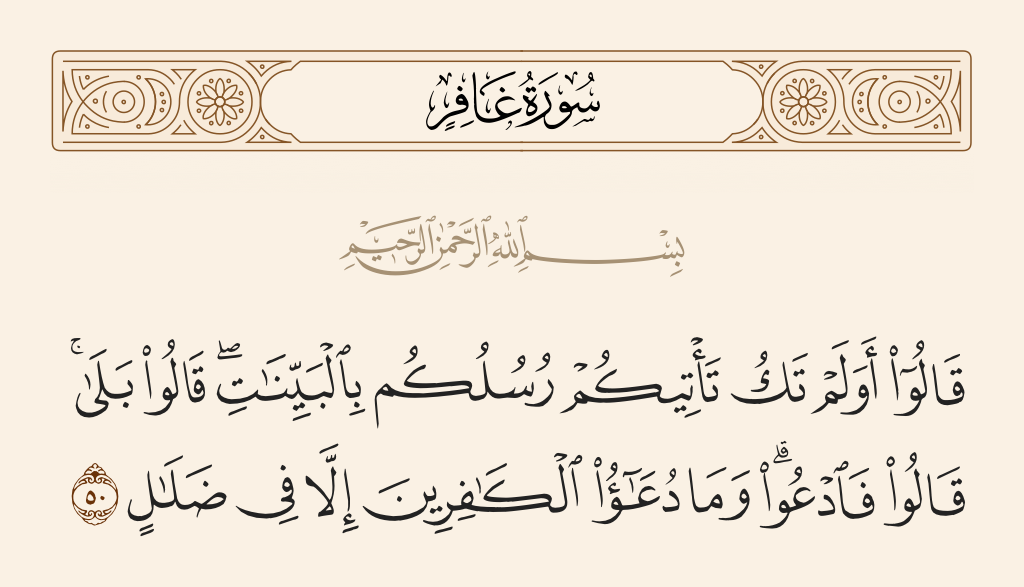 سُورَةُ غَافِرٍ
بِسْمِ ٱللَّهِ ٱلرَّحْمَٰنِ ٱلرَّحِيمِ
قَالُوٓا۟ أَوَلَمْ تَكُ تَأْتِيكُمْ رُسُلُكُم بِٱلْبَيِّنَـٰتِ ۖ قَالُوا۟ بَلَىٰ ۚ
قَالُوا۟ فَٱدْعُوا۟ ۗ وَمَا دُعَـٰٓؤُا۟ ٱلْكَـٰفِرِينَ إِلَّا فِى ضَلَـٰلٍ ٥٠